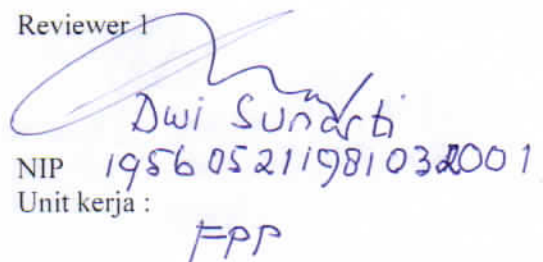 Reviewer 1
Dwi Sunarti
NIP 195605211981032001
Unit kerja :
FPP